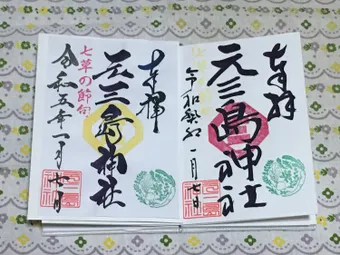 奉拝
元三島神社
一月七日
奉拝
元三島神社
七草の節句
令和五年一月七日